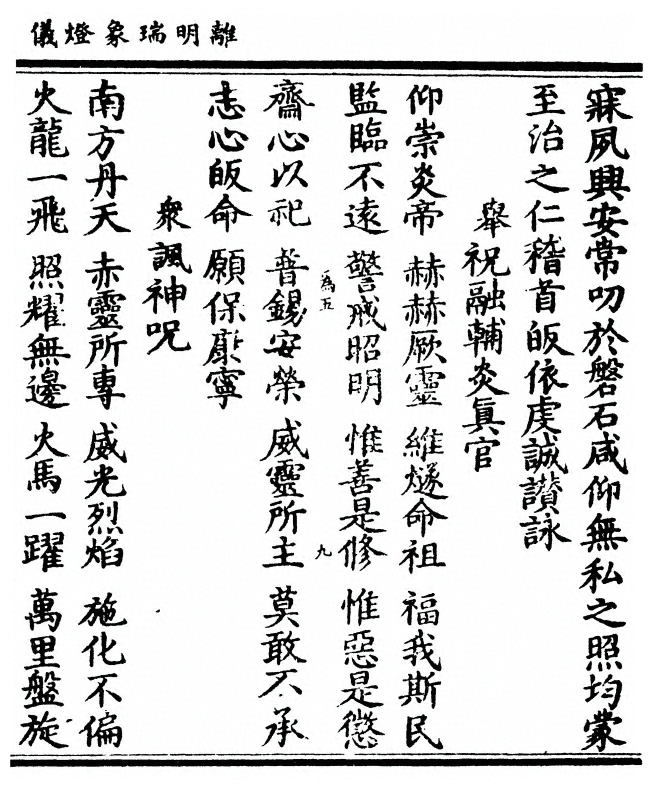 離明瑞象燈儀
寐夙興安常叨於磐石咸仰無私之照均蒙
至治之仁稽首皈依虔誠讃詠
舉祝融輔炎眞官
仰崇炎帝 赫赫厥靈 維燧命祖 福我斯民
監臨不遠 警戒昭明 惟善是修 惟惡是懲
為五 九
齋心以祀 普錫安榮 威靈所主 莫敢不承
志心皈命 願保康寧
衆諷神呪
南方丹天 赤靈所專 威光烈焰 施化不偏
火龍一飛 照耀無邊 火馬一躍 萬里盤旋